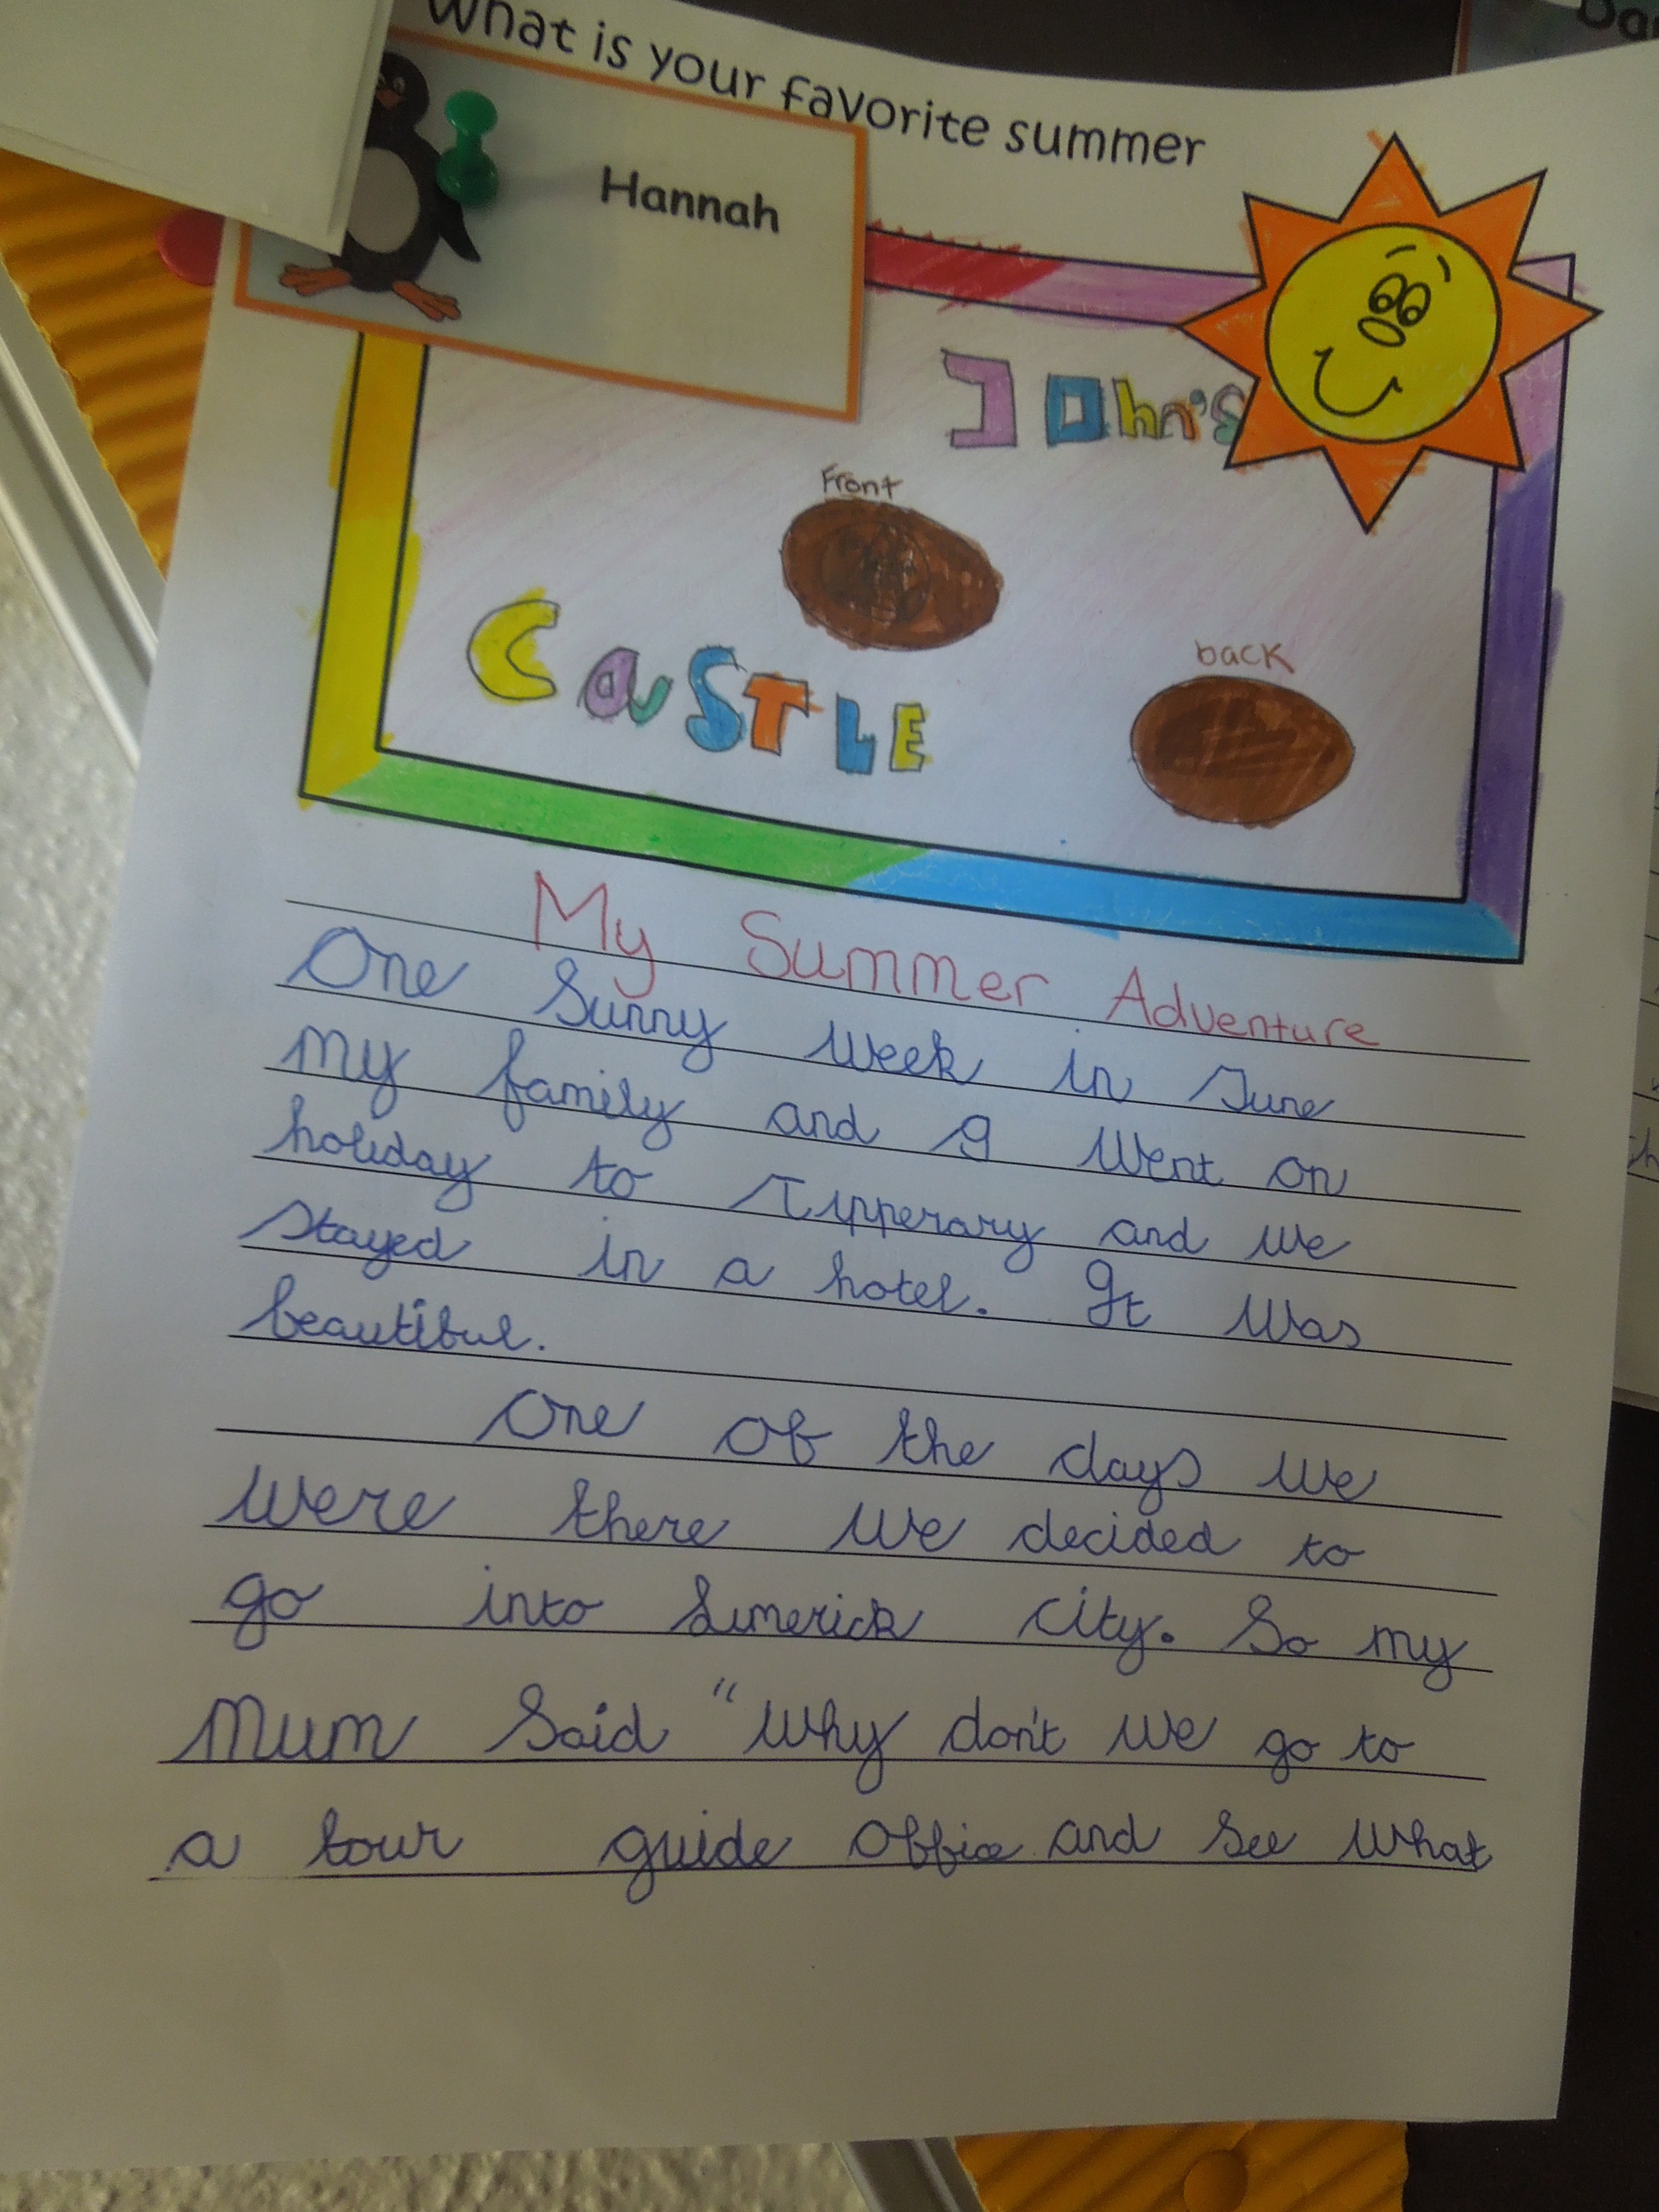 What is your favorite summer
Hannah
JOhn's
Front
CaSTLE
back
My Summer Adventure
One Sunny week in June
my family and I went on
holiday to Tipperary and we
stayed in a hotel. It was
beautiful.
One of the days we
were there we decided to
go into Limerick city. So my
mum said "Why don't we go to
a tour guide office and see what